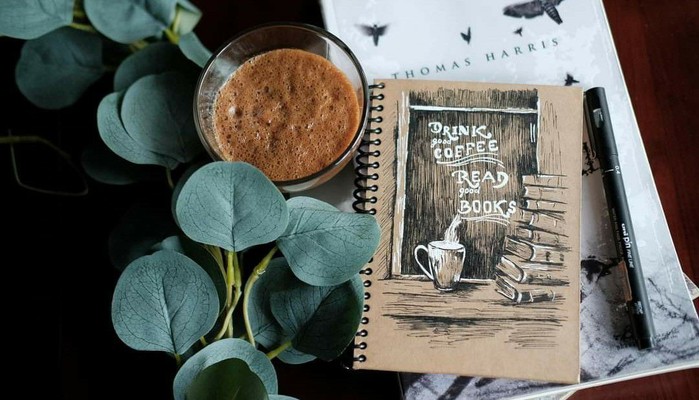 THOMAS HARRIS
DRINK
good
COFFEE
READ
good
BOOKS